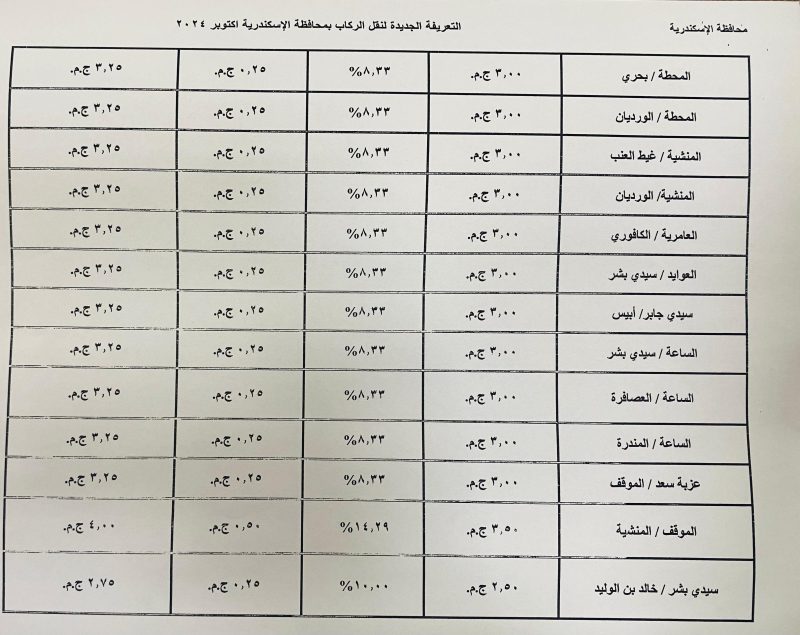 محافظة الإسكندرية
التعريفة الجديدة لنقل الركاب بمحافظة الإسكندرية اكتوبر ٢٠٢٤
المحطة / بحري ٣,٠٠ ج.م. ٨,٣٣% ٠,٢٥ ج.م. ٣,٢٥ ج.م.
المحطة / الورديان ٣,٠٠ ج.م. ٨,٣٣% ٠,٢٥ ج.م. ٣,٢٥ ج.م.
المنشية / غيط العنب ٣,٠٠ ج.م. ٨,٣٣% ٠,٢٥ ج.م. ٣,٢٥ ج.م.
المنشية/ الورديان ٣,٠٠ ج.م. ٨,٣٣% ٠,٢٥ ج.م. ٣,٢٥ ج.م.
العامرية / الكافوري ٣,٠٠ ج.م. ٨,٣٣% ٠,٢٥ ج.م. ٣,٢٥ ج.م.
العوايد / سيدي بشر ٣,٠٠ ج.م. ٨,٣٣% ٠,٢٥ ج.م. ٣,٢٥ ج.م.
سيدي جابر/ أبيس ٣,٠٠ ج.م. ٨,٣٣% ٠,٢٥ ج.م. ٣,٢٥ ج.م.
الساعة / سيدي بشر ٣,٠٠ ج.م. ٨,٣٣% ٠,٢٥ ج.م. ٣,٢٥ ج.م.
الساعة / العصافرة ٣,٠٠ ج.م. ٨,٣٣% ٠,٢٥ ج.م. ٣,٢٥ ج.م.
الساعة / المندرة ٣,٠٠ ج.م. ٨,٣٣% ٠,٢٥ ج.م. ٣,٢٥ ج.م.
عزبة سعد / الموقف ٣,٠٠ ج.م. ٨,٣٣% ٠,٢٥ ج.م. ٣,٢٥ ج.م.
الموقف / المنشية ٣,٥٠ ج.م. ١٤,٢٩% ٠,٥٠ ج.م. ٤,٠٠ ج.م.
سيدي بشر / خالد بن الوليد ٢,٥٠ ج.م. ١٠,٠٠% ٠,٢٥ ج.م. ٢,٧٥ ج.م.